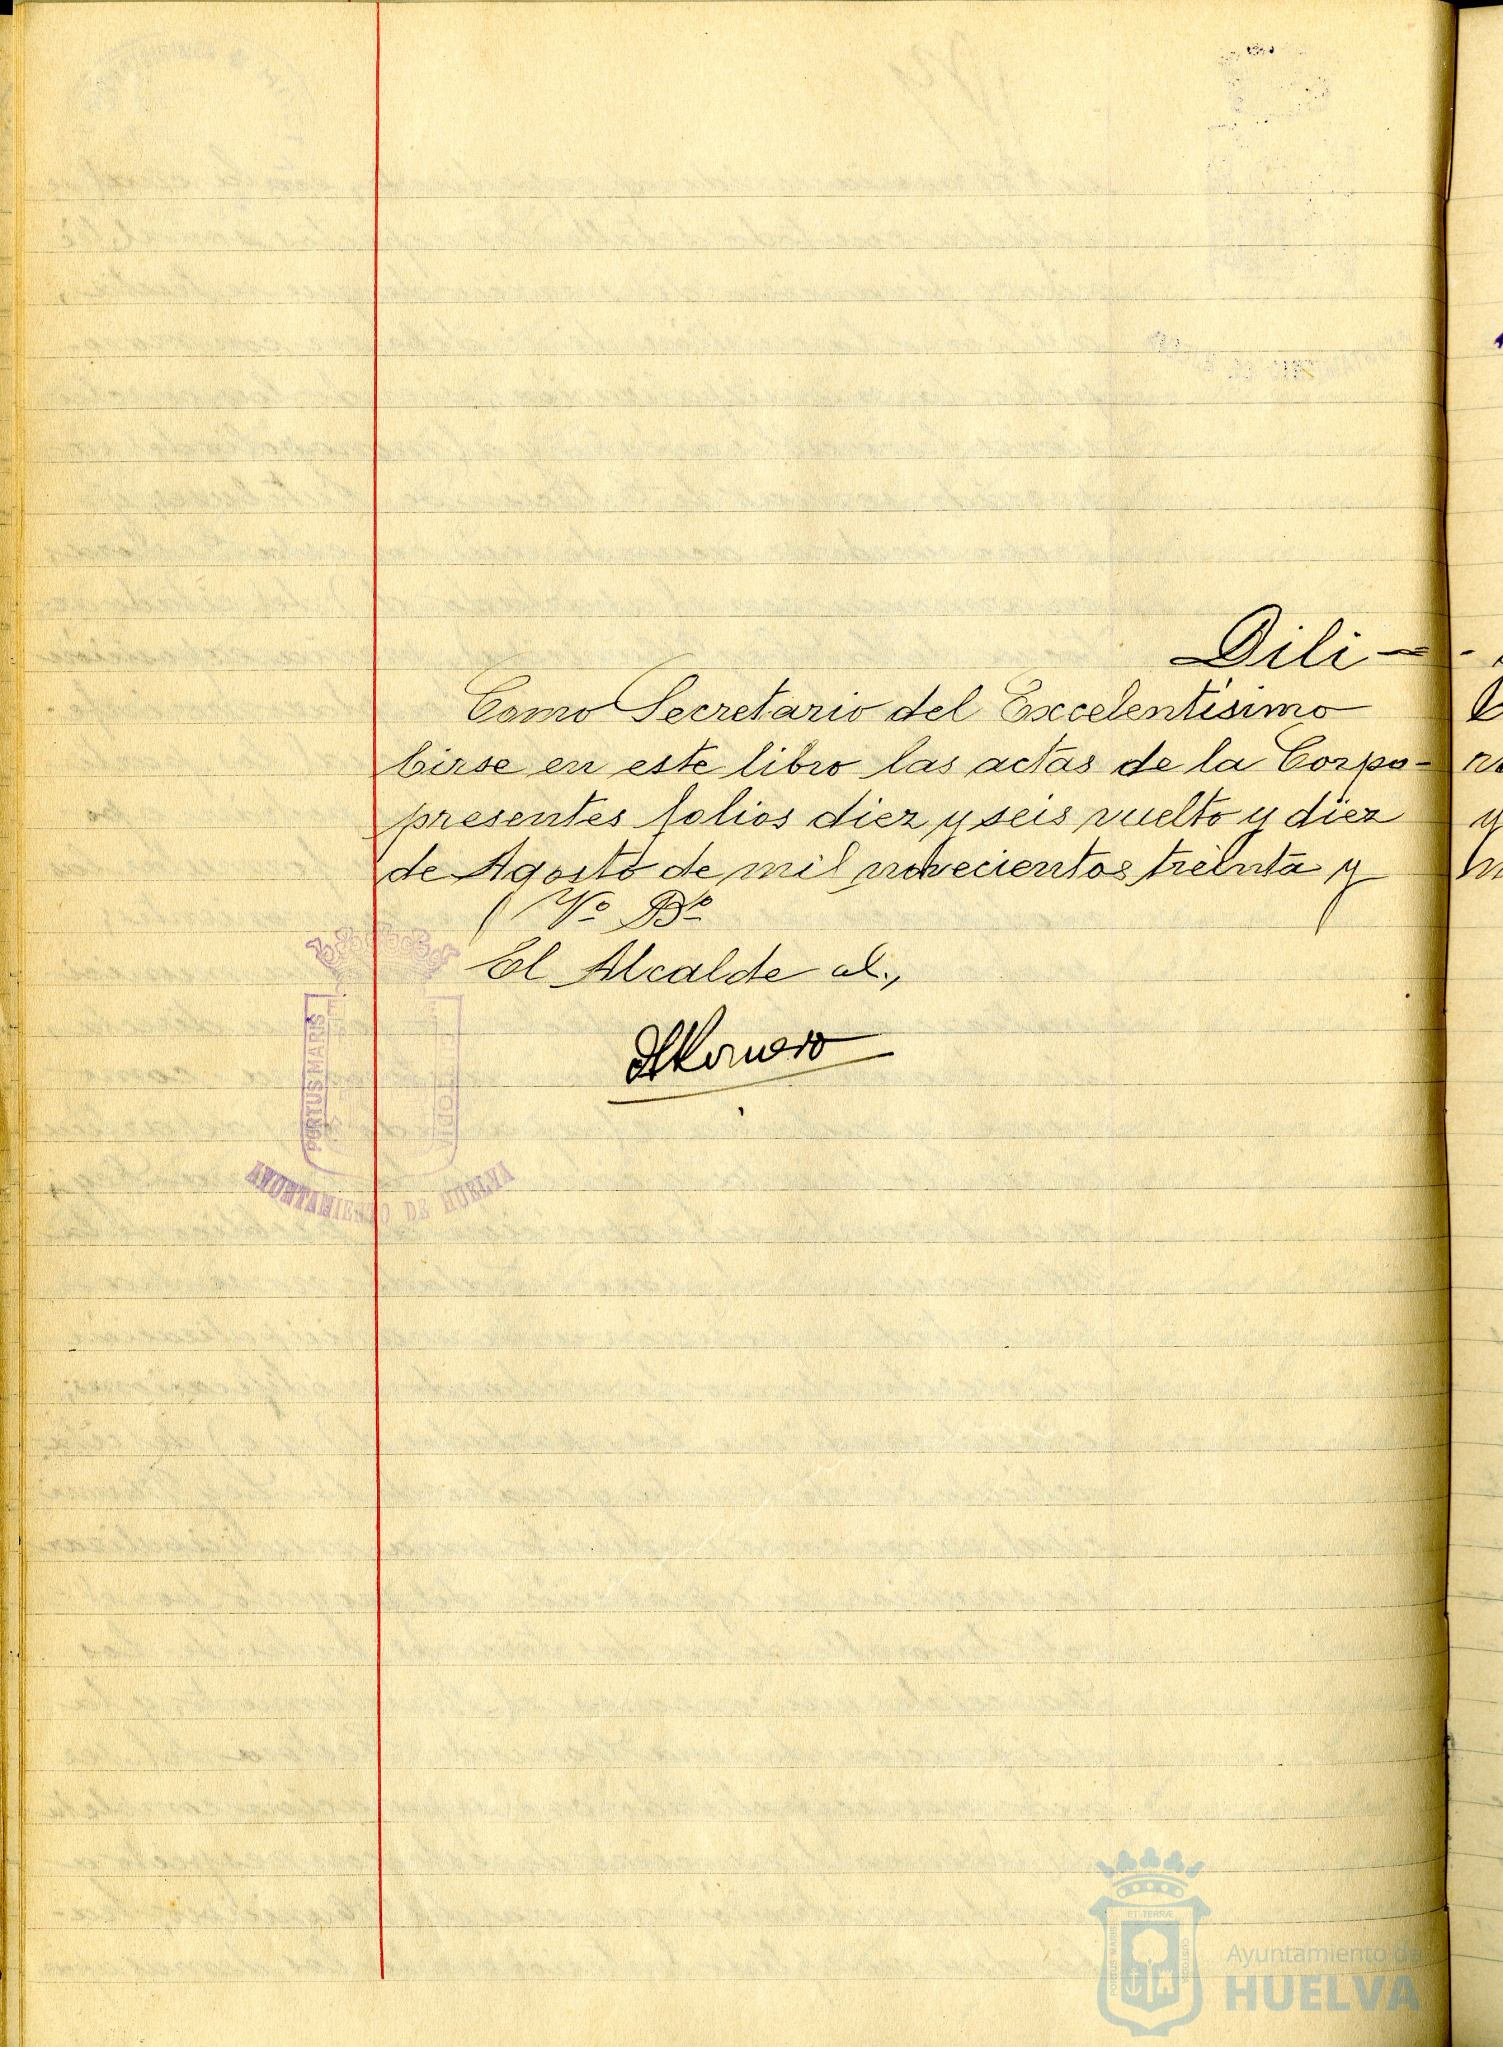 Dili-
Como Secretario del Excelentísimo
birse en este libro las actas de la Corpo-
presentes folios diez y seis vuelto y diez
de Agosto de mil novecientos treinta y
Vº Bº
El Alcalde al.,
Romero
PORTUS MARIS
AYUNTAMIENTO DE HUELVA
ET TERRÆ
PORTUS MARIS
CUSTODIA
Ayuntamiento de
HUELVA